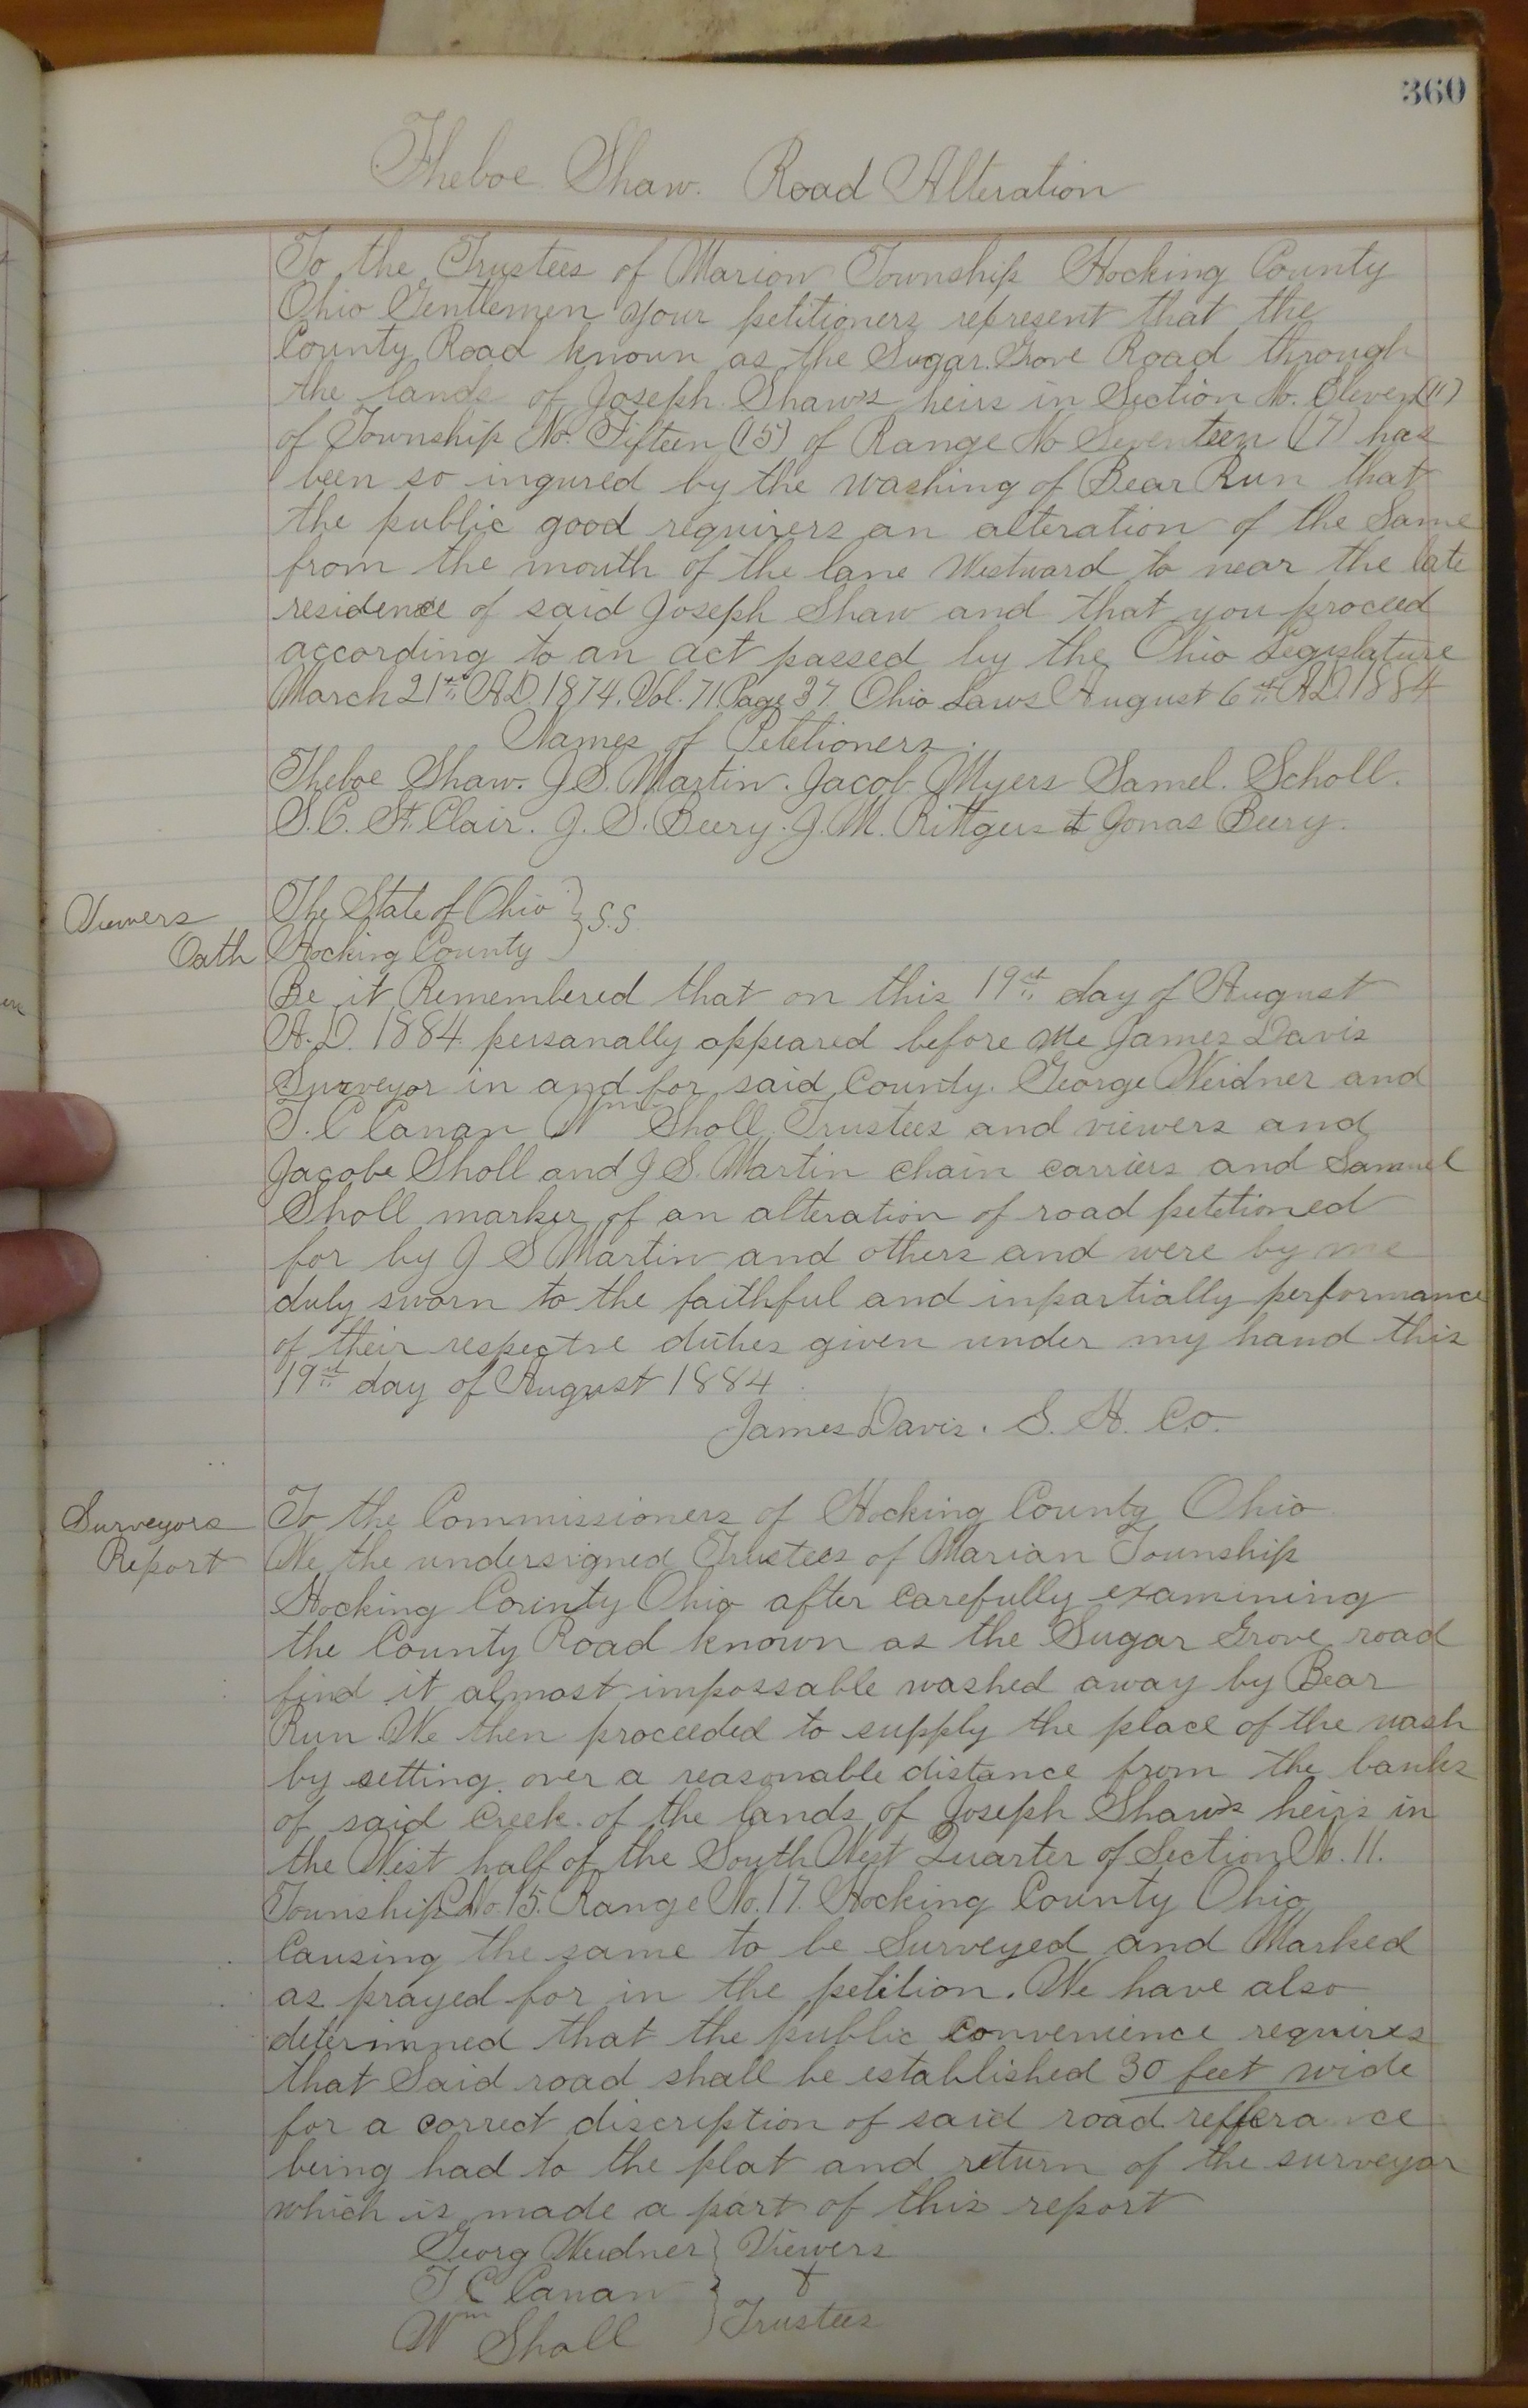 360
Theboe Shaw. Road Alteration
To the Trustees of Marion Township Hocking County
Ohio Gentlemen Your petitioners represent that the
County Road known as the Sugar Grove Road through
the lands of Joseph Shaw's heirs in Section No. Eleven (11)
of Township No. Fifteen (15) of Range No Seventeen (17) has
been so ingured by the washing of Bear Run that
the public good requirers an alteration of the Same
from the mouth of the lane Westward to near the late
residence of said Joseph Shaw and that you proceed
according to an act passed by the Ohio Legislature
March 21st A.D. 1874. Vol. 71 Page 37 Ohio Laws August 6th A.D. 1884
Names of Petetioners.
Theboe Shaw. J. S. Martin. Jacob Myers Samel. Scholl.
S. C. St. Clair. J. S. Beery. J. M. Rittgers & Jonas Beery.
Viewers
Oath
The State of Ohio } S.S
Hocking County
Be it Remembered that on this 19th day of August
A.D. 1884 persanally appeared before me James Davis
Surveyor in and for said County. George Weidner and
T. C Canan Wm Sholl Trustees and viewers and
Jacobe Sholl and J S. Martin chain carriers and Samuel
Sholl marker of an alteration of road petetioned
for by J S Martin and others and were by me
duly sworn to the faithful and inpartially performance
of their respectve duties given under my hand this
19th day of August 1884
James Davis. S. H. Co.
Surveyors
Report
To the Commissioners of Hocking County Ohio
We the undersigned Trustees of Marian Township
Hocking County Ohio after carefully examining
the County Road known as the Sugar Grove road
find it almost impossable washed away by Bear
Run. We then proceeded to supply the place of the wash
by setting over a reasonable distance from the banks
of said Creek. of the lands of Joseph Shaw's heirs in
the West half of the South West Quarter of Section No. 11.
Township No. 15. Range No. 17. Hocking County Ohio
Causing the same to be Surveyed and Marked
as prayed for in the petition. We have also
determned that the public Convenience requires
that Said road shall be established 30 feet wide
for a correct discreption of said road refferance
being had to the plat and return of the surveyor
which is made a part of this report
Georg Weidner } Viewers
T C Canan &
Wm Sholl Trustees